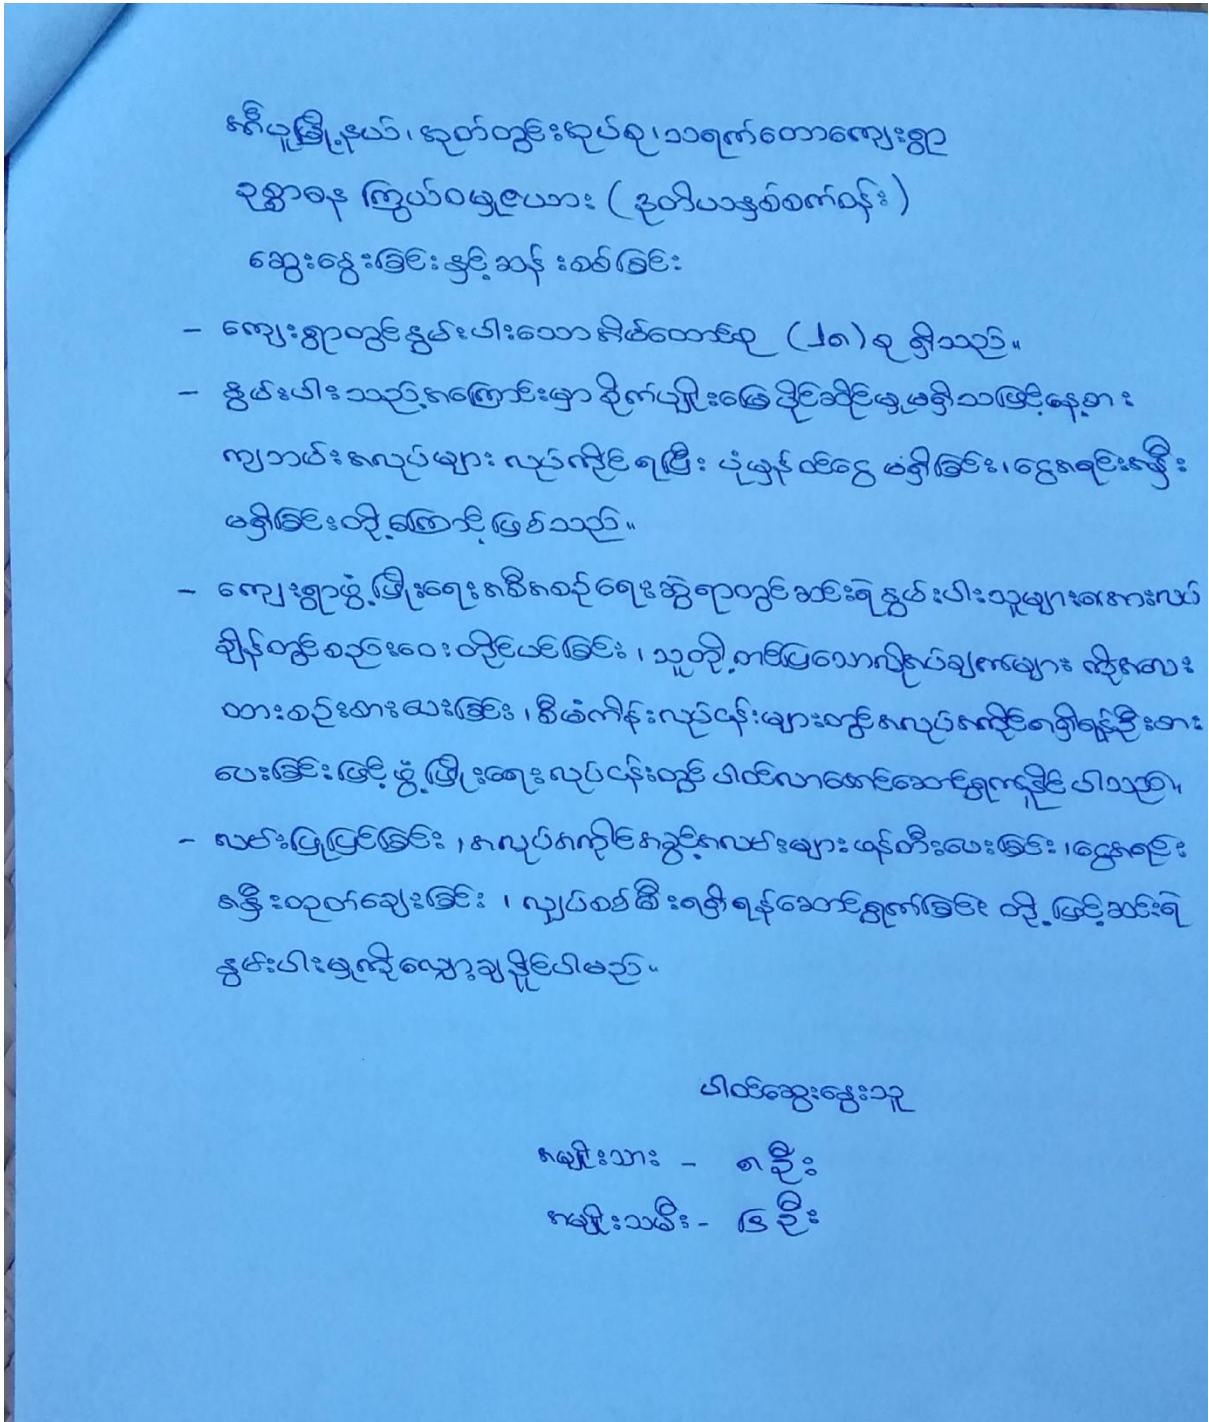 အင်္ဂပူမြို့နယ်၊အုတ်တွင်းအုပ်စု၊သရက်တောကျေးရွာ
ဥစ္စာဓန ကြွယ်ဝမှုဇယား (ဒုတိယနှစ်စက်ဝန်း)
ဆွေးနွေးခြင်းနှင့်ဆန်းစစ်ခြင်း
- ကျေးရွာတွင်နွမ်းပါးသောအိမ်ထောင်စု (၂၈) စု ရှိသည်။
- နွမ်းပါးသည့်အကြောင်းမှာ စိုက်ပျိုးမြေပိုင်ဆိုင်မှုမရှိသဖြင့်နေ့စား
ကျဘမ်းအလုပ်များ လုပ်ကိုင်ရပြီး ပုံမှန်ဝင်ငွေ မရှိခြင်း၊ငွေအရင်းအနှီး
မရှိခြင်းတို့ကြောင့်ဖြစ်သည်။
- ကျေးရွာဖွံ့ဖြိုးရေးအစီအစဉ်ရေးဆွဲရာတွင်ဆင်းရဲနွမ်းပါးသူများအားလပ်
ချိန်တွင်စည်းဝေးတိုင်ပင်ခြင်း၊သူတို့တင်ပြသောလိုအပ်ချက်များ ကိုအလေး
ထားစဉ်းစားပေးခြင်း၊စီမံကိန်းလုပ်ငန်းများတွင်အလုပ်အကိုင်ရရှိရန်ဦးစား
ပေးခြင်းဖြင့်ဖွံ့ဖြိုးရေးလုပ်ငန်းတွင် ပါဝင်လာအောင်ဆောင်ရွက်နိုင်ပါသည်။
- လမ်းပြုပြင်ခြင်း၊အလုပ်အကိုင်အခွင့်အလမ်းများဖန်တီးပေးခြင်း၊ငွေအရင်း
အနှီးထုတ်ချေးခြင်း၊လျှပ်စစ်မီးရရှိရန်ဆောင်ရွက်ခြင်း တို့ဖြင့်ဆင်းရဲ
နွမ်းပါးမှုကိုလျှော့ချနိုင်ပါမည်။
ပါဝင်ဆွေးနွေးသူ
အမျိုးသား - ၈ဦး
အမျိုးသမီး - ၆ဦး